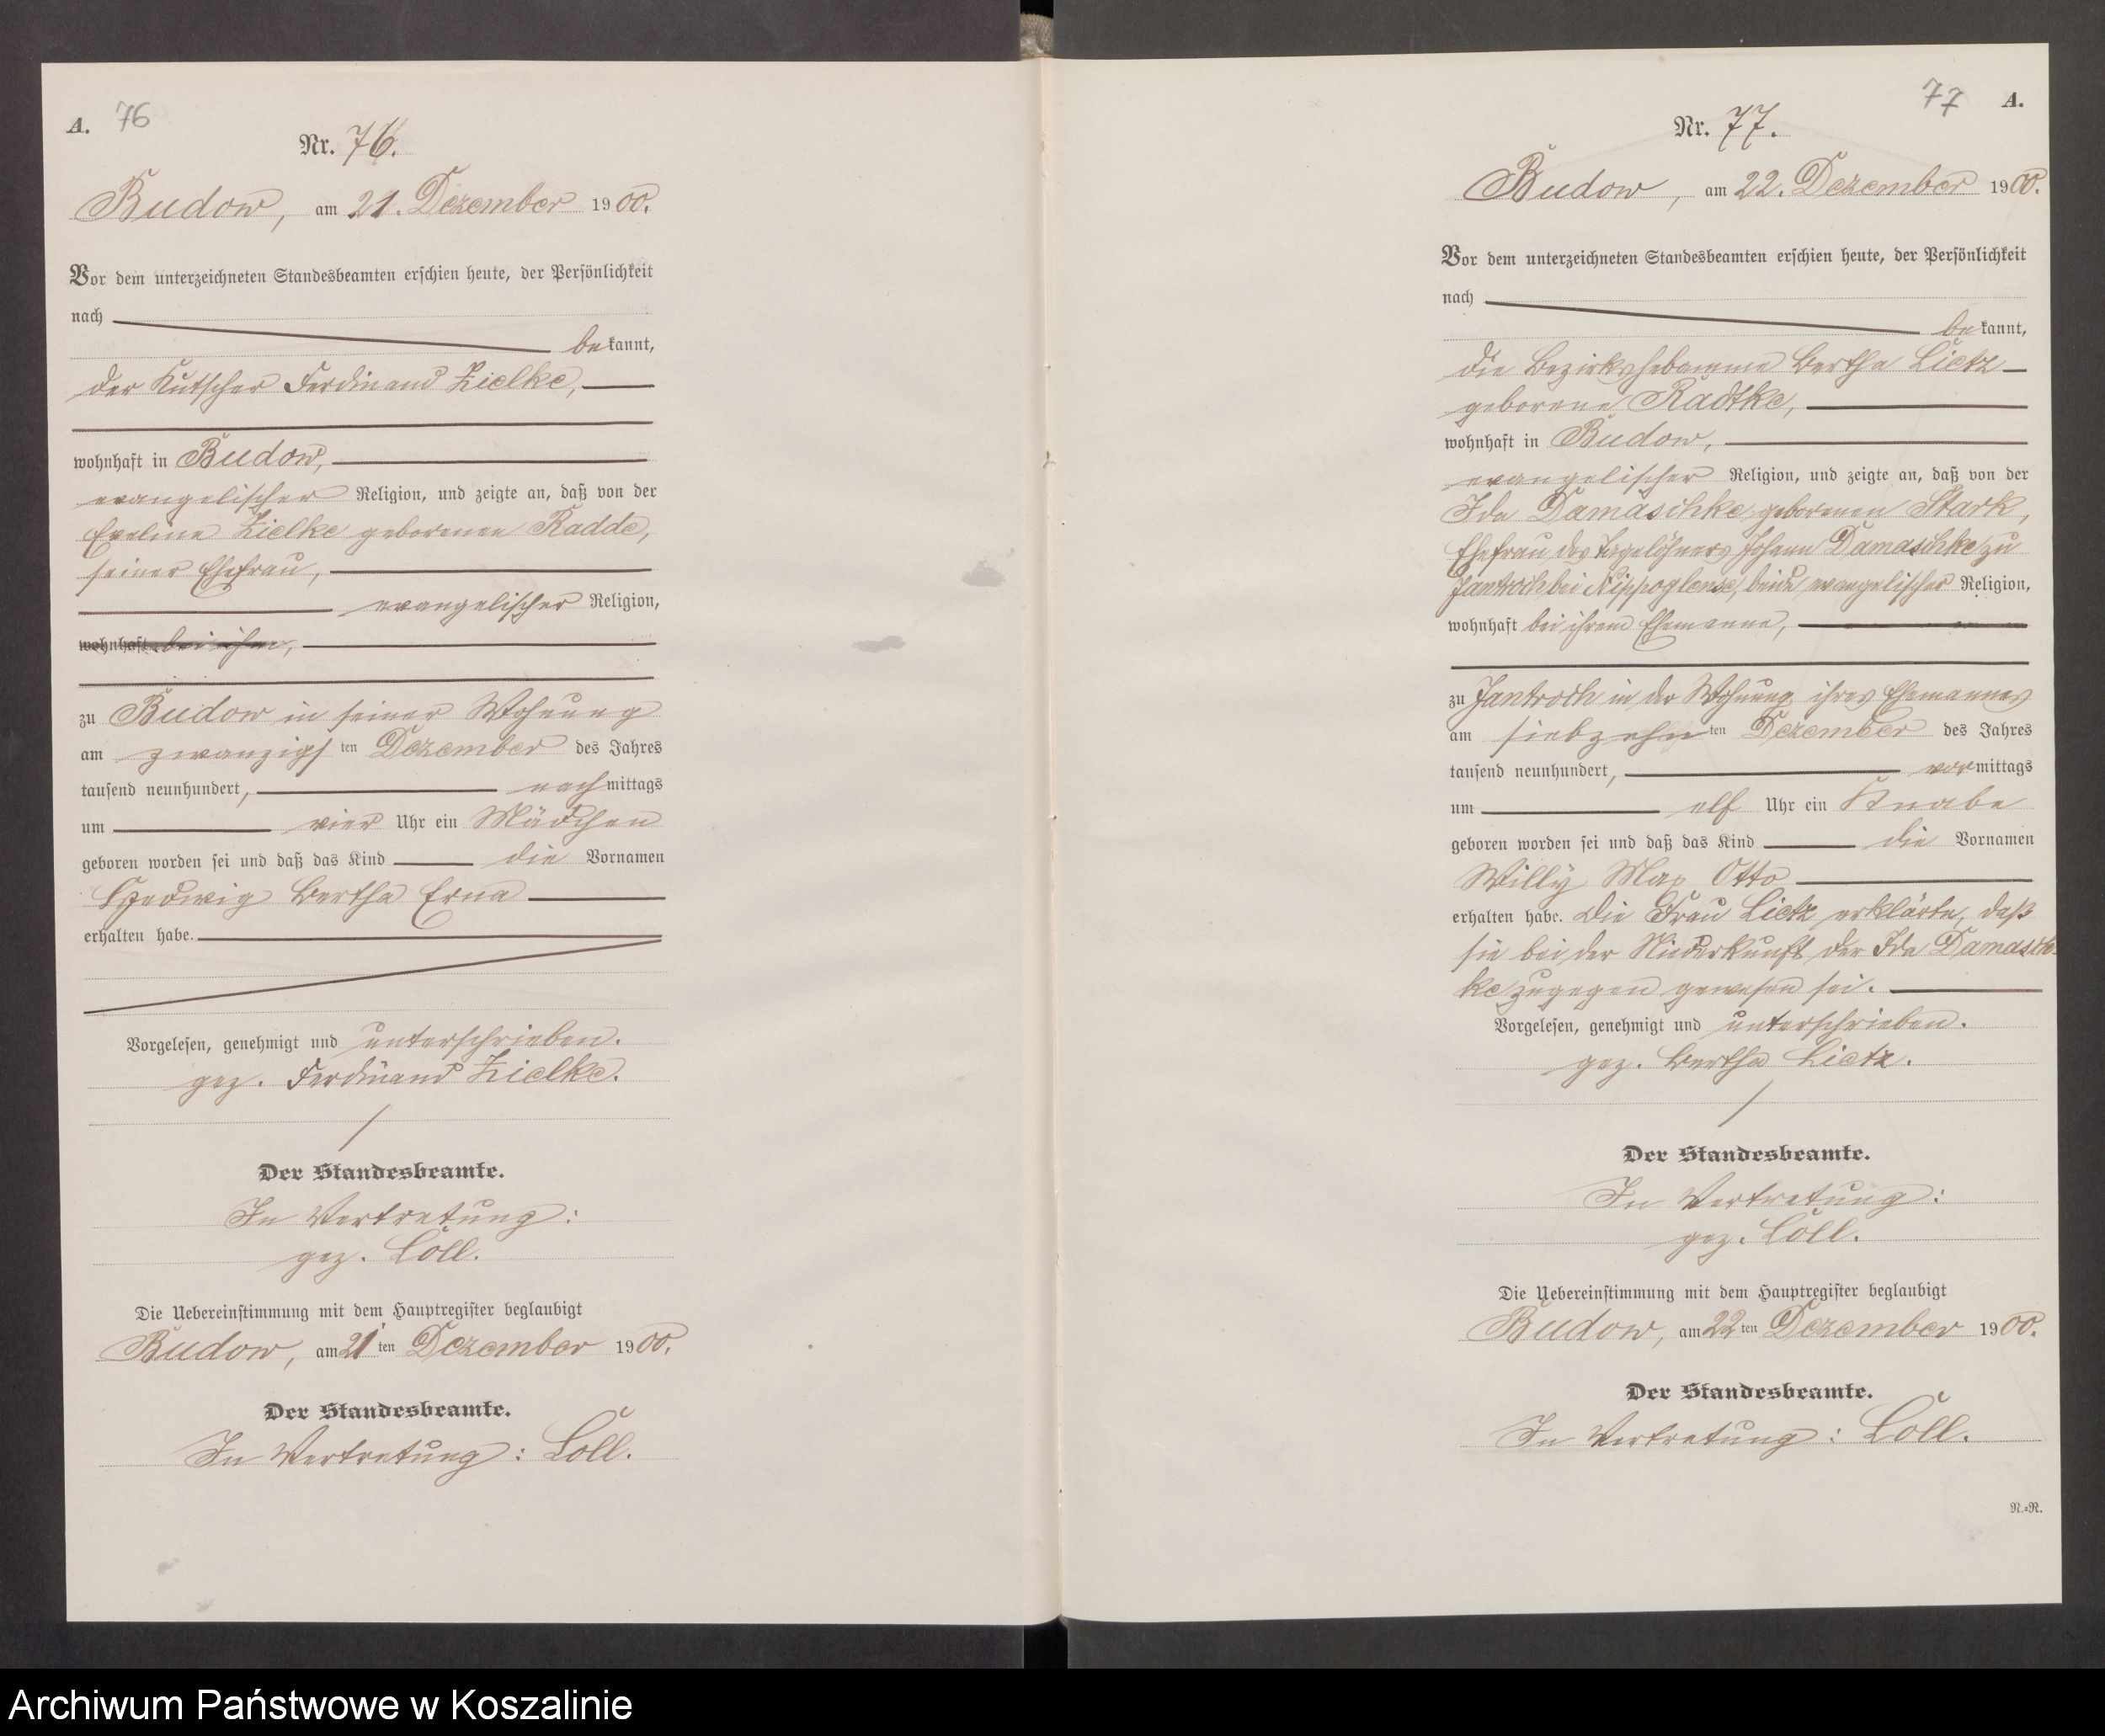 A. 76
Nr. 76.
Budow, am 21. Dezember 1900.
Vor dem unterzeichneten Standesbeamten erschien heute, der Persönlichkeit
nach
bekannt,
der Kutscher Ferdinand Zielke,
wohnhaft in Budow,
evangelischer Religion, und zeigte an, daß von der
Eveline Zielke geborenen Radde,
seiner Ehefrau,
evangelischer Religion,
wohnhaft bei ihm,
zu Budow in seiner Wohnung
am zwanzigsten Dezember des Jahres
tausend neunhundert, nachmittags
um vier Uhr ein Mädchen
geboren worden sei und daß das Kind die Vornamen
Hedwig Bertha Erna
erhalten habe.
Vorgelesen, genehmigt und unterschrieben.
gez. Ferdinand Zielke.
Der Standesbeamte.
In Vertretung:
gez. Loll.
Die Uebereinstimmung mit dem Hauptregister beglaubigt
Budow, am 21ten Dezember 1900.
Der Standesbeamte.
In Vertretung: Loll.
77 A.
Nr. 77.
Budow, am 22. Dezember 1900.
Vor dem unterzeichneten Standesbeamten erschien heute, der Persönlichkeit
nach
bekannt,
die Bezirkshebamme Bertha Lietz
geborene Radtke,
wohnhaft in Budow,
evangelischer Religion, und zeigte an, daß von der
Ida Damaschke geborenen Stark,
Ehefrau des Tagelöhners Johann Damaschke zu
Jantroch bei Nippoglense, beide evangelischer Religion,
wohnhaft bei ihrem Ehemanne,
zu Jantroch in der Wohnung ihres Ehemannes
am siebzehnten Dezember des Jahres
tausend neunhundert, vormittags
um elf Uhr ein Knabe
geboren worden sei und daß das Kind die Vornamen
Willy Max Otto
erhalten habe. Die Frau Lietz erklärte, daß
sie bei der Niederkunft der Ida Damasch-
ke zugegen gewesen sei.
Vorgelesen, genehmigt und unterschrieben.
gez. Bertha Lietz.
Der Standesbeamte.
In Vertretung:
gez. Loll.
Die Uebereinstimmung mit dem Hauptregister beglaubigt
Budow, am 22ten Dezember 1900.
Der Standesbeamte.
In Vertretung: Loll.
N.=R.
Archiwum Państwowe w Koszalinie